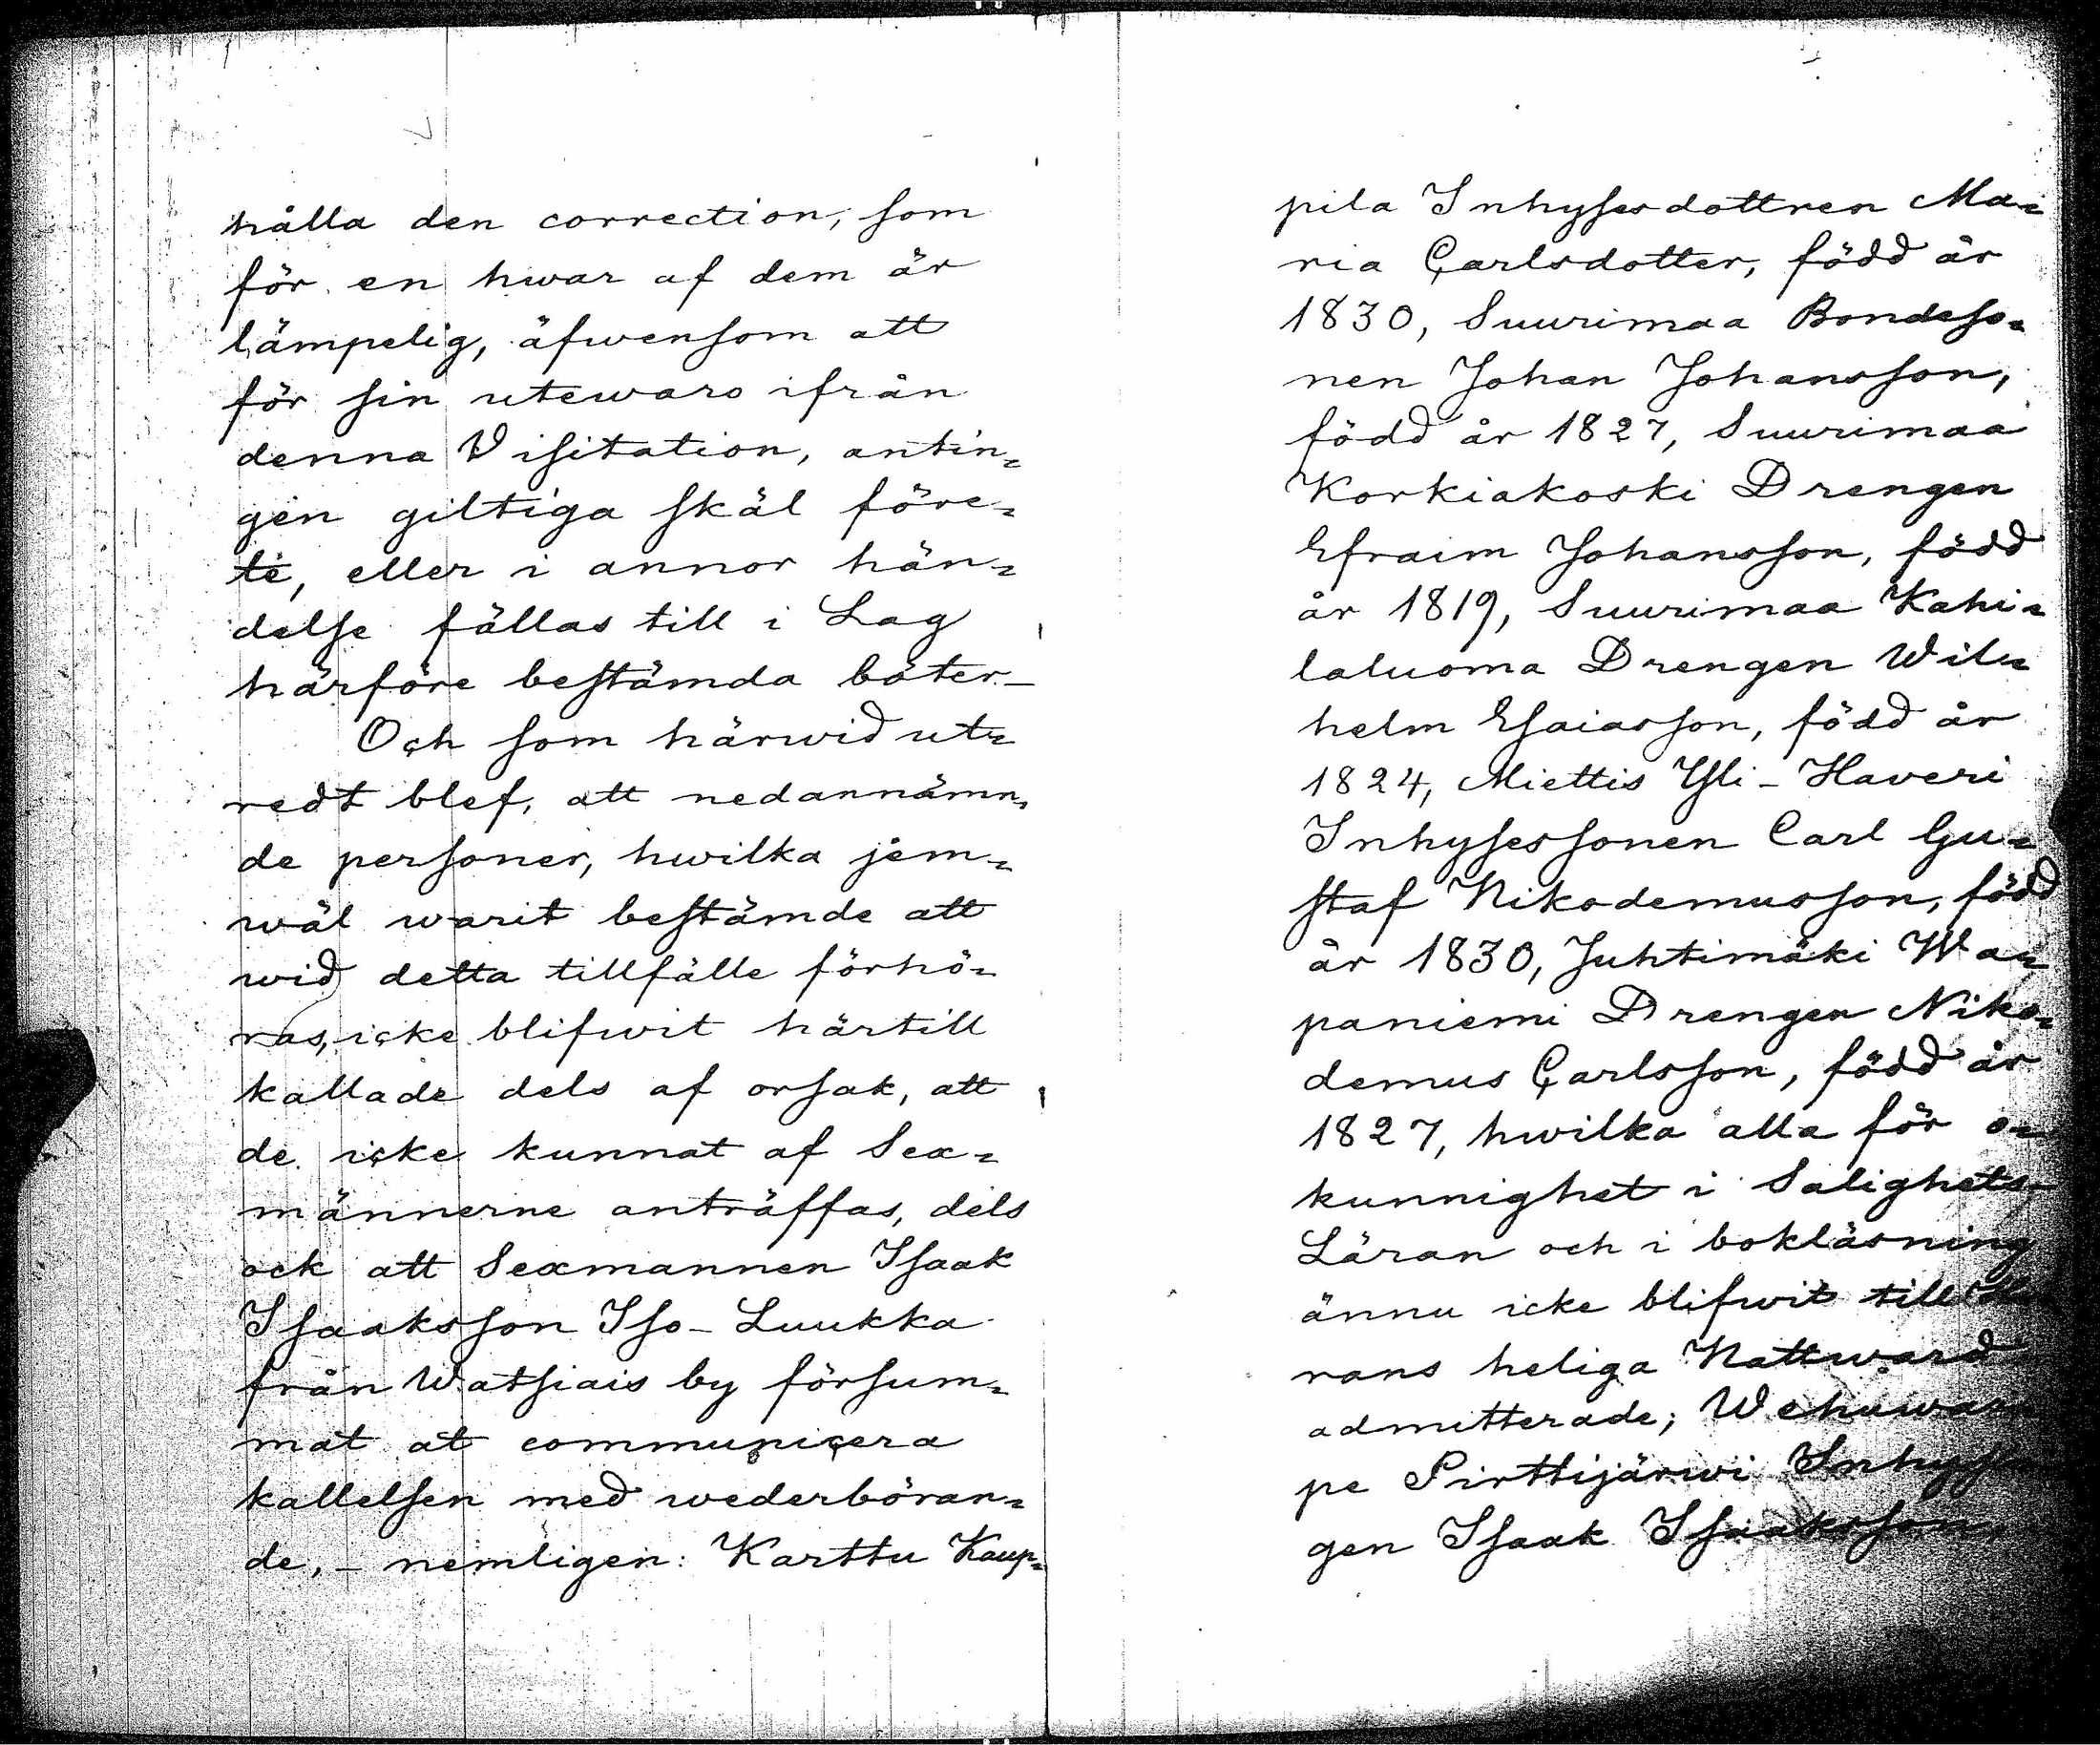 hålla den correction, som
för en hwar af dem är
lämpelig, äfwensom att
för sin utewaro ifrån
denna Visitation, antin=
gen giltiga skäl före=
te, eller i annor hän=
delse fällas till i Lag
härföre bestämda böter_
Och som härwid ut=
redt blef, att nedannämn=
de personer, hwilka jem=
wäl warit bestämde att
wid detta tillfälle förhö=
ras, icke blifwit härtill
kallade dels af orsak, att
de icke kunnat af Sex=
männerne anträffas, dels
ock att Sexmannen Isaak
Isaaksson Iso-Luukka
från Watsiais by försum=
mat at communicera
kallelsen med wederböran=
de, - nemligen: Karttu Kaup=
pila Inhysesdottren Ma=
ria Carlsdotter, född år
1830, Suurimaa Bondeso=
nen Johan Johansson,
född år 1827, Suurimaa
Korkiakoski Drengen
Efraim Johansson, född
år 1819, Suurimaa Kahi=
laluoma Drengen Wil=
helm Esaiasson, född år
1824, Miettis Yli-Haveri
Inhysessonen Carl Gu=
staf Nikodemusson, född
år 1830, Juhtimäki Wa=
paniemi Drengen Niko=
demus Carlsson, född år
1827, hwilka alla för o=
kunnighet i Salighets-
Läran och i bokläsning
ännu icke blifwit till
rans heliga Nattward
admitterade; Wehuwar
pe Pirttijärwi Inhys
gen Isaak Isaaksson,